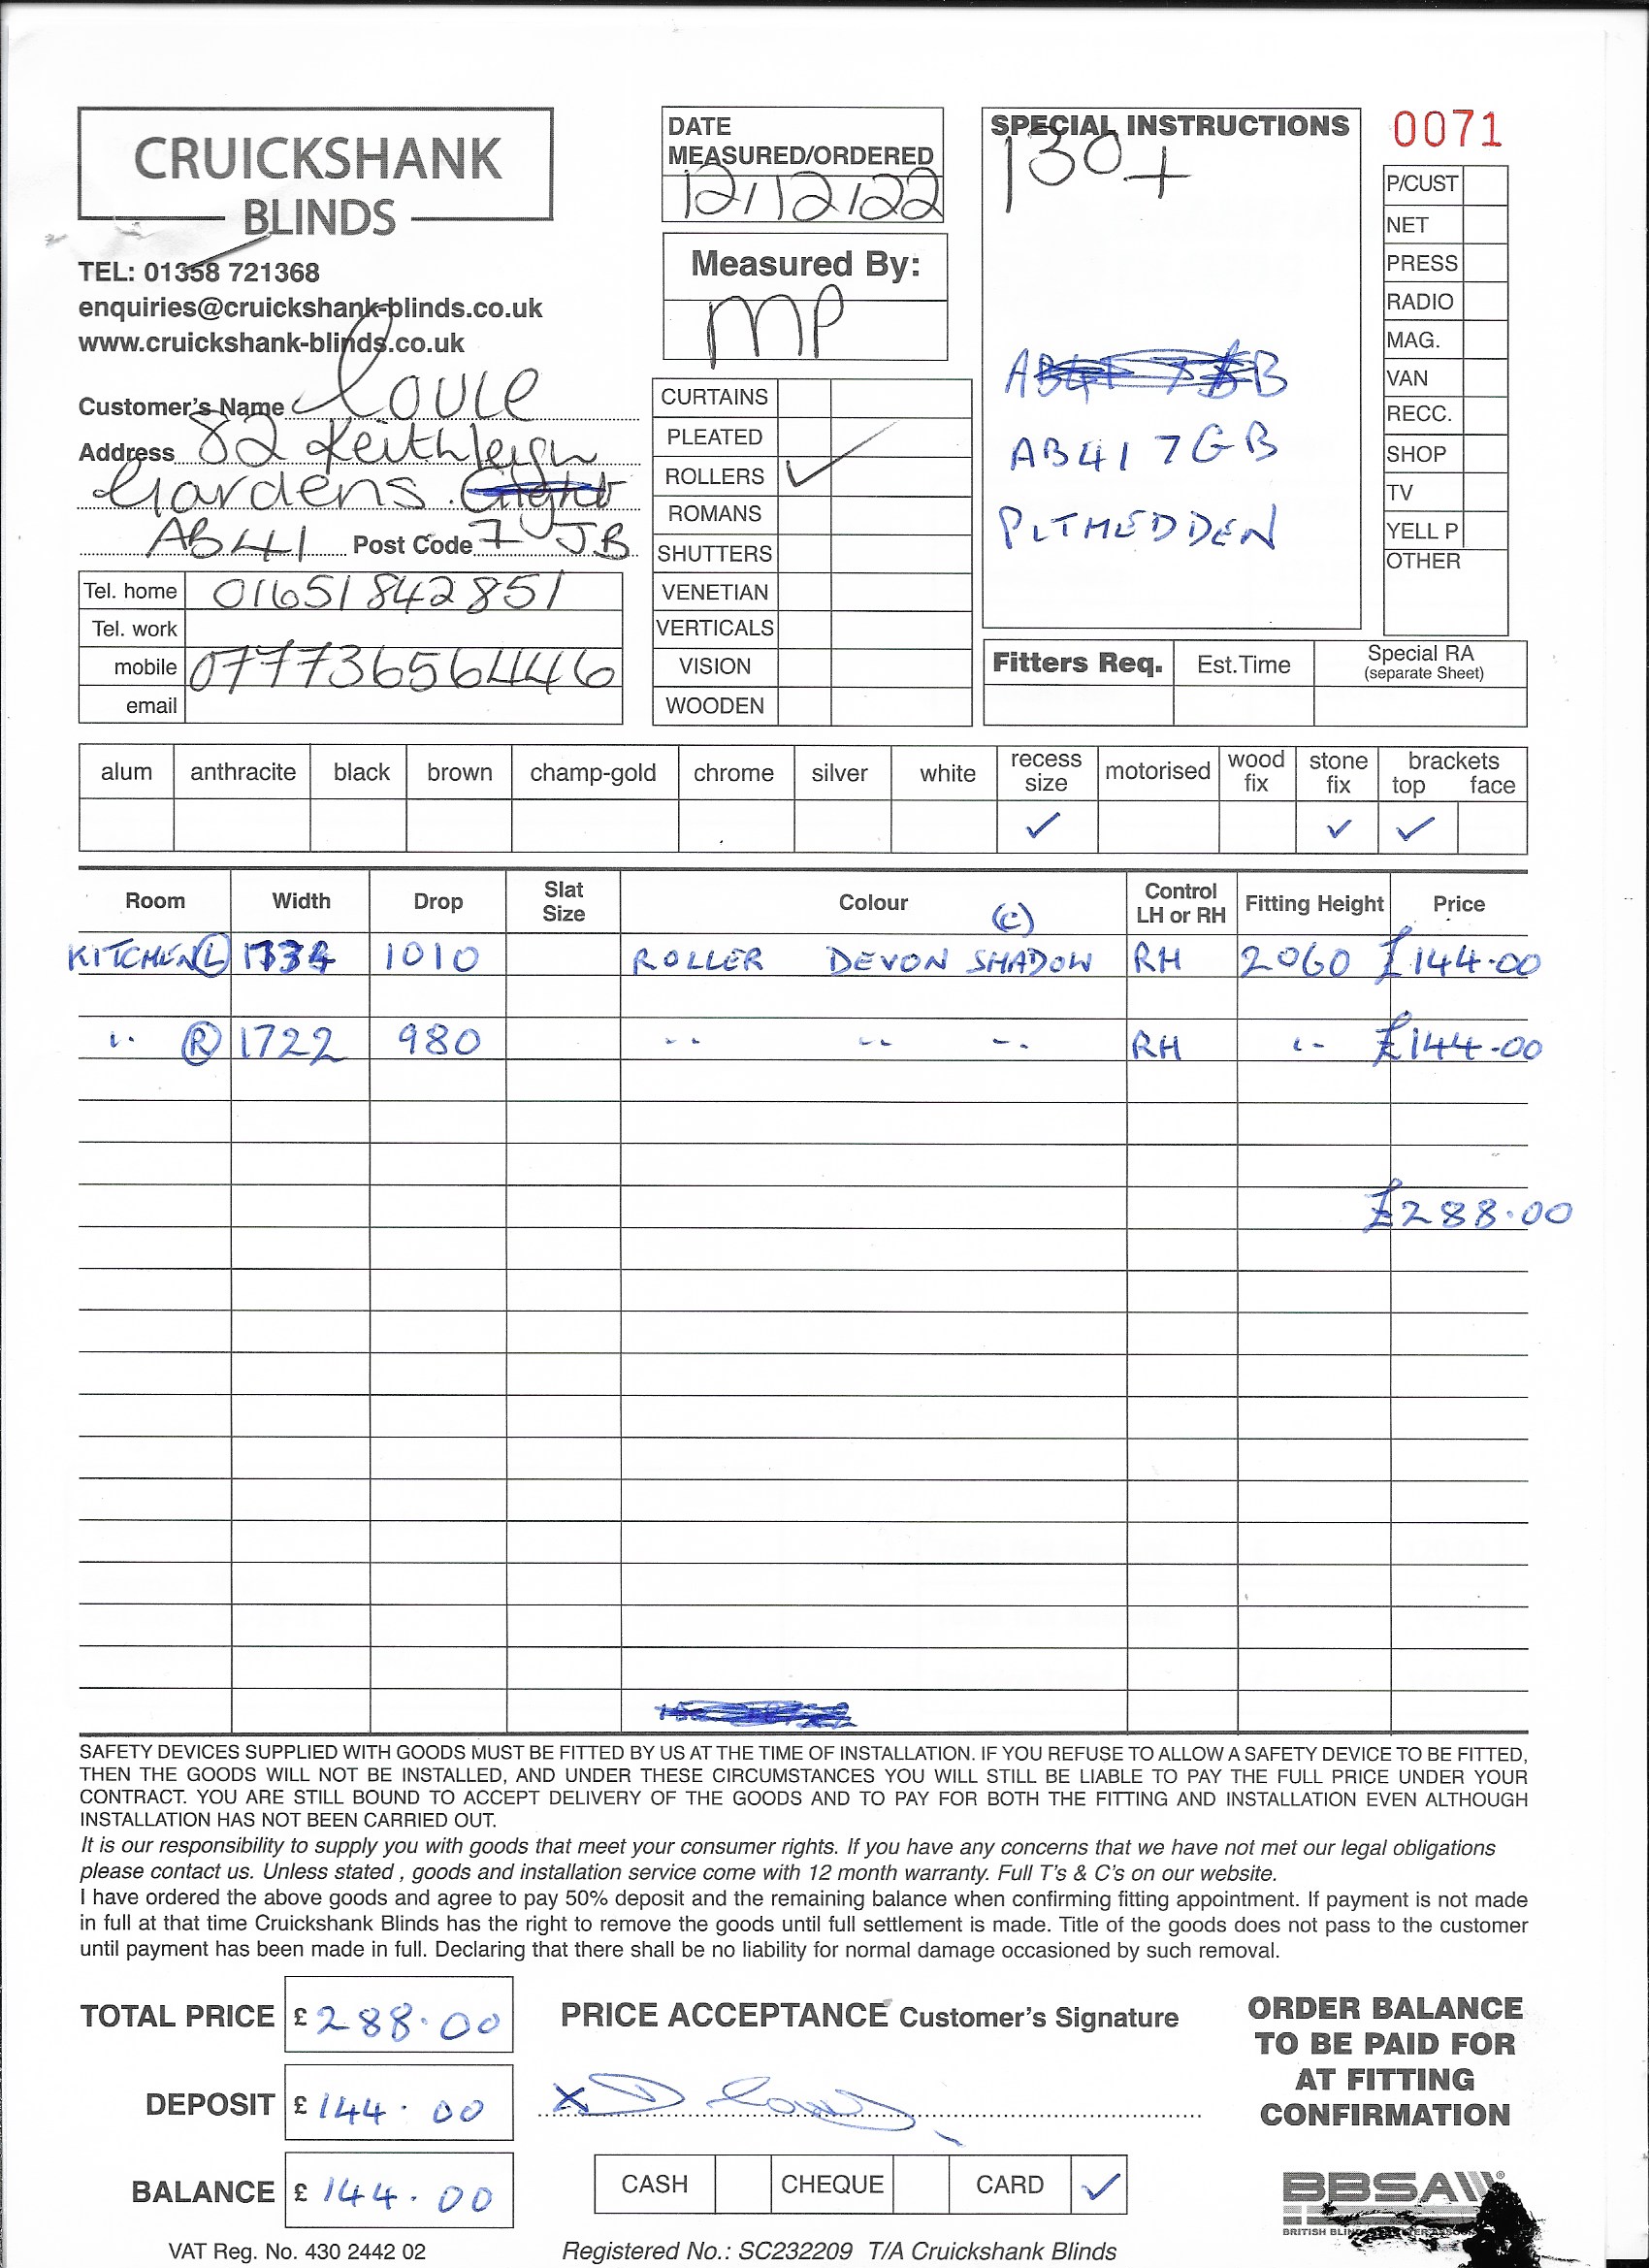 CRUICKSHANK
BLINDS
TEL: 01358 721368
enquiries@cruickshank-blinds.co.uk
www.cruickshank-blinds.co.uk
Customer's Name
Address 82 Keithleigh
Gardens.
AB41 Post Code 7 JB
Tel. home 01651 842851
Tel. work
mobile 07773656446
email
DATE
MEASURED/ORDERED
12/12/22
Measured By:
MP
CURTAINS
PLEATED
ROLLERS ✓
ROMANS
SHUTTERS
VENETIAN
VERTICALS
VISION
WOODEN
SPECIAL INSTRUCTIONS
130+
AB41 7GB
PITMEDDEN
0071
P/CUST
NET
PRESS
RADIO
MAG.
VAN
RECC.
SHOP
TV
YELL P
OTHER
Fitters Req. Est.Time Special RA
(separate Sheet)
alum anthracite black brown champ-gold chrome silver white recess size motorised wood fix stone fix brackets top face
✓ ✓ ✓
Room Width Drop Slat Size Colour (C) Control LH or RH Fitting Height Price
KITCHEN (L) 1734 1010 ROLLER DEVON SHADOW RH 2060 £144.00
" (R) 1722 980 " " " RH " £144.00
£288.00
SAFETY DEVICES SUPPLIED WITH GOODS MUST BE FITTED BY US AT THE TIME OF INSTALLATION. IF YOU REFUSE TO ALLOW A SAFETY DEVICE TO BE FITTED,
THEN THE GOODS WILL NOT BE INSTALLED, AND UNDER THESE CIRCUMSTANCES YOU WILL STILL BE LIABLE TO PAY THE FULL PRICE UNDER YOUR
CONTRACT. YOU ARE STILL BOUND TO ACCEPT DELIVERY OF THE GOODS AND TO PAY FOR BOTH THE FITTING AND INSTALLATION EVEN ALTHOUGH
INSTALLATION HAS NOT BEEN CARRIED OUT.
It is our responsibility to supply you with goods that meet your consumer rights. If you have any concerns that we have not met our legal obligations
please contact us. Unless stated , goods and installation service come with 12 month warranty. Full T's & C's on our website.
I have ordered the above goods and agree to pay 50% deposit and the remaining balance when confirming fitting appointment. If payment is not made
in full at that time Cruickshank Blinds has the right to remove the goods until full settlement is made. Title of the goods does not pass to the customer
until payment has been made in full. Declaring that there shall be no liability for normal damage occasioned by such removal.
TOTAL PRICE £ 288.00
DEPOSIT £ 144.00
BALANCE £ 144.00
PRICE ACCEPTANCE Customer's Signature
X
CASH CHEQUE CARD ✓
ORDER BALANCE
TO BE PAID FOR
AT FITTING
CONFIRMATION
BBSA
BRITISH
VAT Reg. No. 430 2442 02
Registered No.: SC232209 T/A Cruickshank Blinds